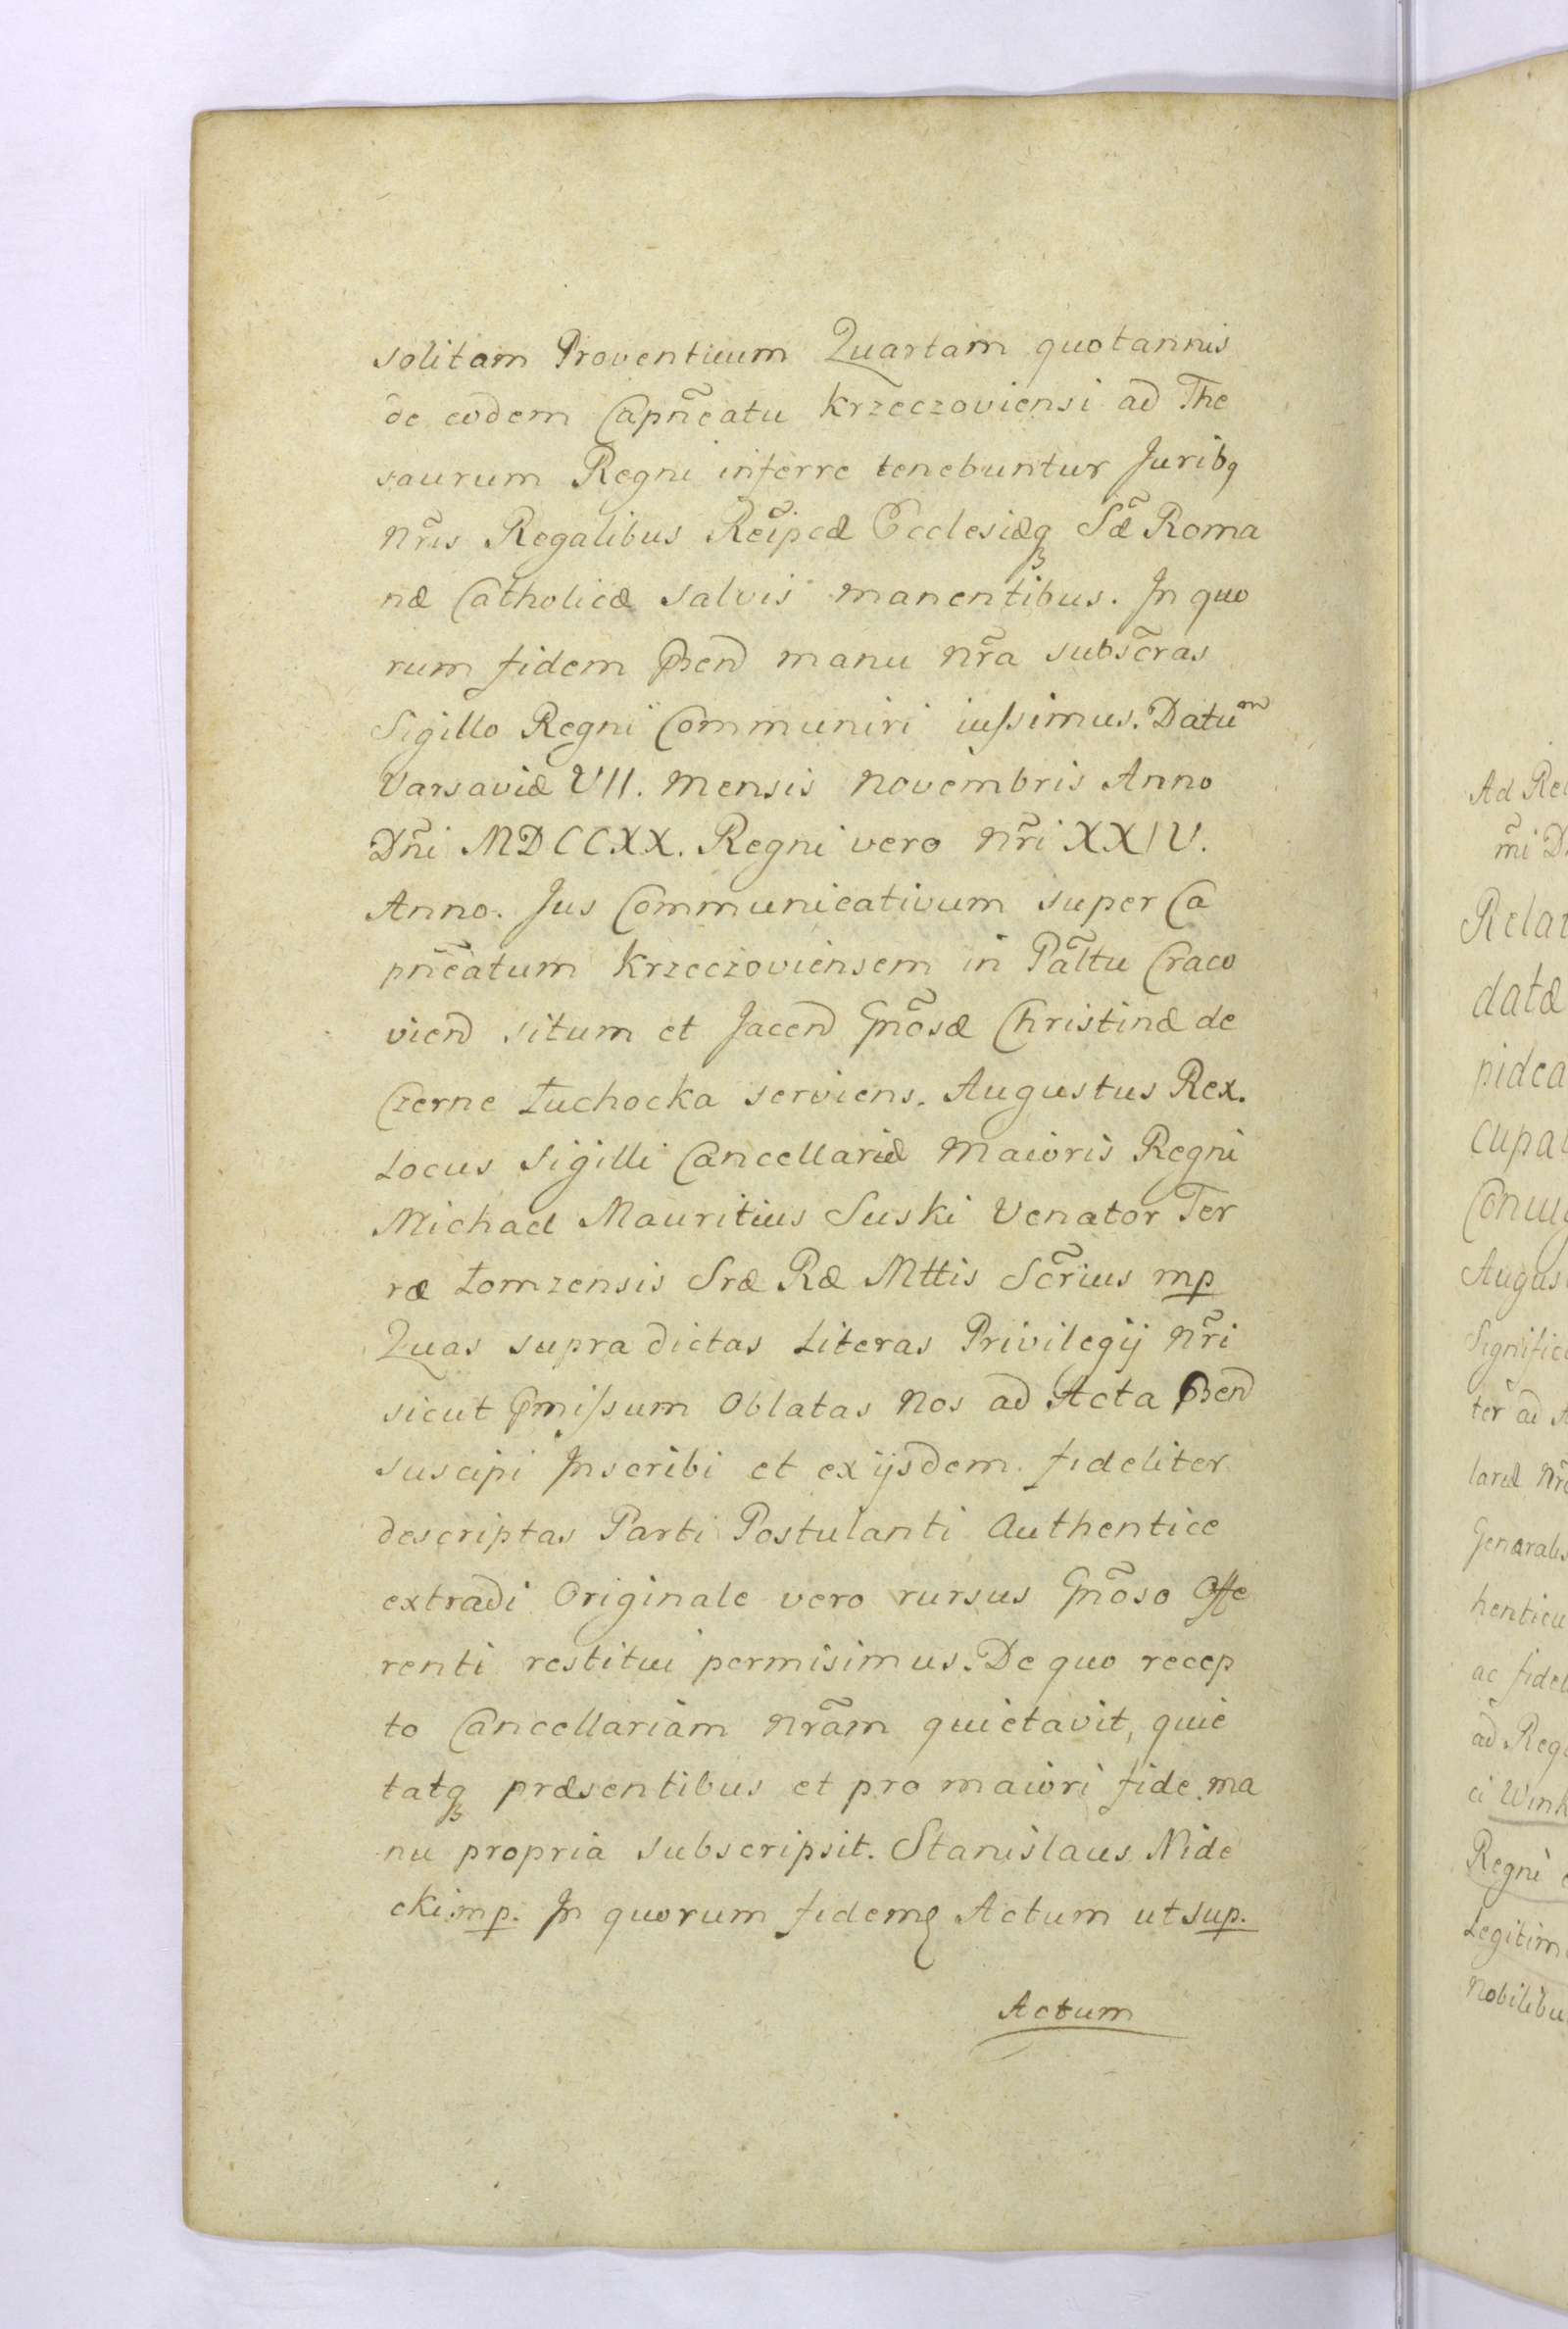 solitam Proventuum Quartam quotannis
de eodem Capñeatu Krzeczoviensi ad The
saurum Regni inferre tenebuntur Juribq
nr̃is Regalibus Rei͠pcæ Ecclesiæq; Sæ̃ Roma
næ Catholicæ salvis manentibus. In quo
rum fidem p̄ñend manu nr̃a subsc̃ras
Sigillo Regni Communiri iussimus. Datuᵐ
Varsaviæ VII. Mensis Novembris Anno
Dñi MDCCXX. Regni vero Nr̃i XXIV.
Anno. Jus Communicativum super Ca
pñeatum Krzeczoviensem in Pal̃tu Craco
viend situm et Jacend Gño͠sæ Christinæ de
Czerne Łuchocka serviens. Augustus Rex.
Locus Sigilli Cancellariæ Maioris Regni
Michael Mauritius Suski Venator Ter
ræ Łomzensis Sræ Ræ Mttis Sc̃rius mp
Quas supra dictas Literas Privilegij Nr̃i
sicut p̄missum Oblatas Nos ad Acta p̄ñend
suscipi Inscribi et ex ijsdem fideliter
descriptas Parti Postulanti Authentice
extradi Originale vero rursus Gño͠so Offe
renti restitui permisimus. De quo recep
to Cancellariam Nr̃am quietavit, quie
tatq; præsentibus et pro maiori fide ma
nu propria subscripsit. Stanislaus Nide
cki mp. In quorum fidem Actum ut sup.
Actum
Ad Re
m̃i D
Relat
datæ
pidea
cupa
Coniug
Augus
Signific
ter ad A
lariæ Nr̃
Generalis
henticu
ac fidel
ad Reg
ci Wink
Regni
Legitim
Nobilibu